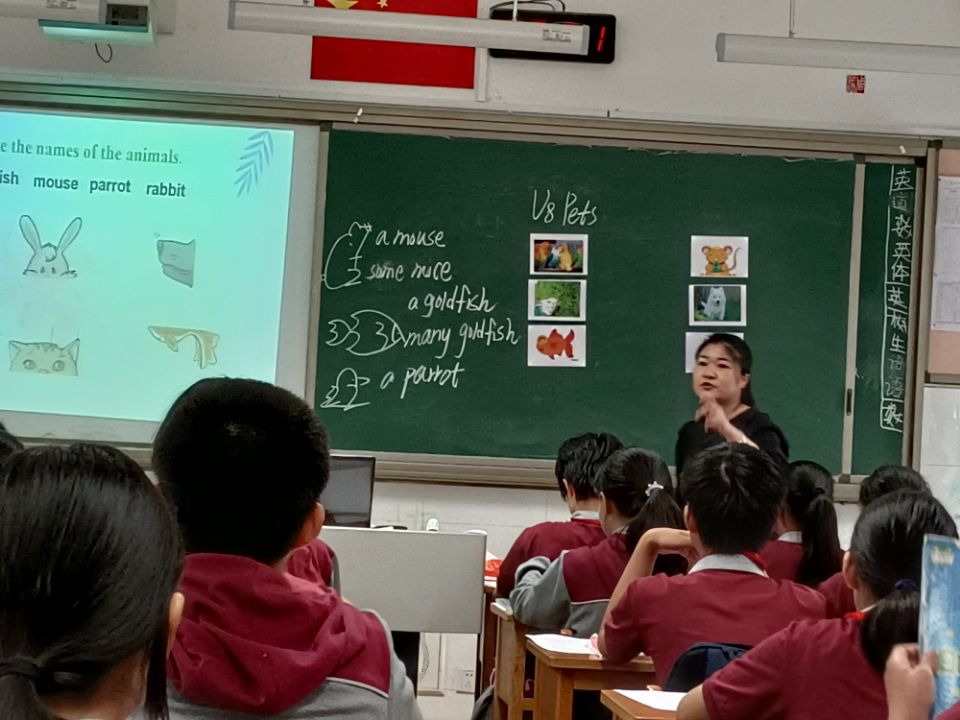 e the names of the animals.
ish mouse parrot rabbit
U8 Pets
a mouse
some mice
a goldfish
many goldfish
a parrot
英
道
数
英
体
英
生
语
数